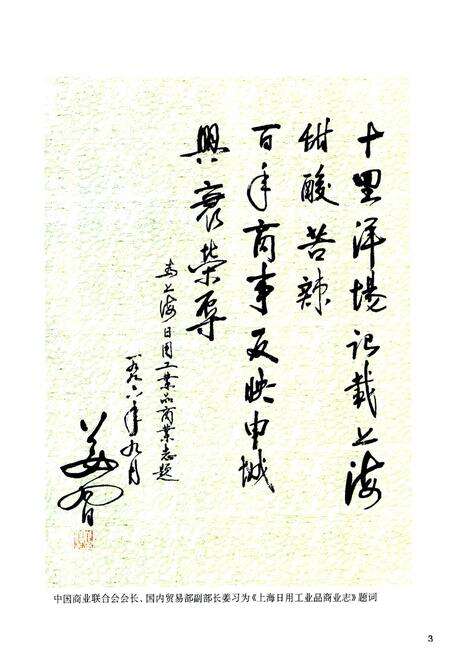 十里洋場记载上海
甜酸苦辣
百年商事反映申城
興衰荣辱
为上海日用工业品商业志题
一九九六年九月
姜习
中国商业联合会会长、国内贸易部副部长姜习为《上海日用工业品商业志》题词
3